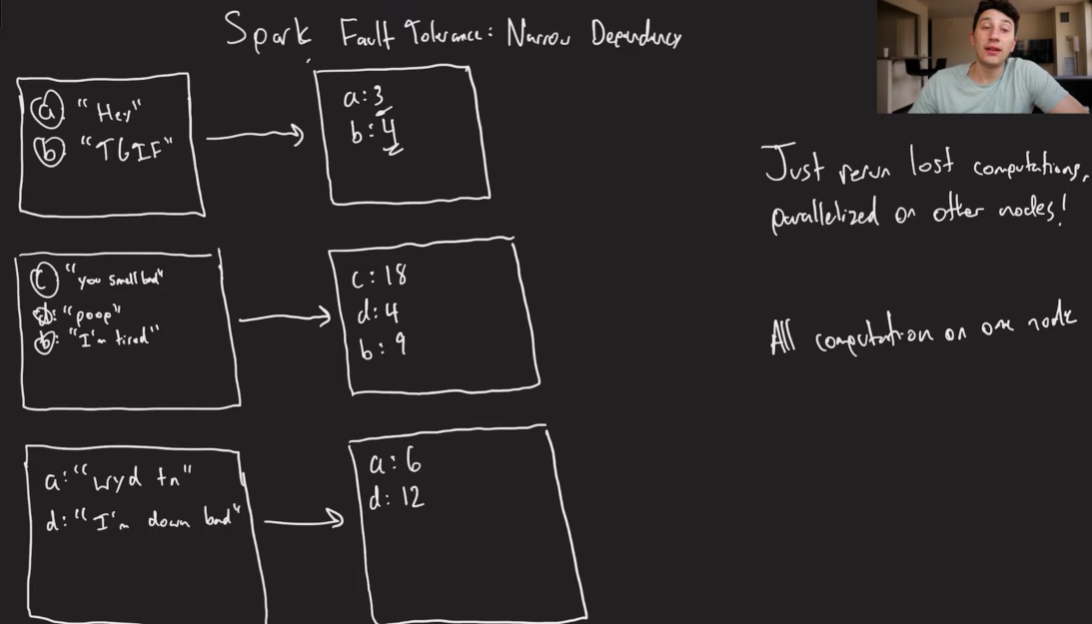 Spark Fault Tolerance: Narrow Dependency
a: "Hey"
b: "TGIF"
a: 3
b: 4
c: "you smell bad"
d: "poop"
b: "I'm tired"
c: 18
d: 4
b: 9
a: "wyd tn"
d: "I'm down bad"
a: 6
d: 12
Just rerun lost computations,
parallelized on other nodes!
All computation on one node